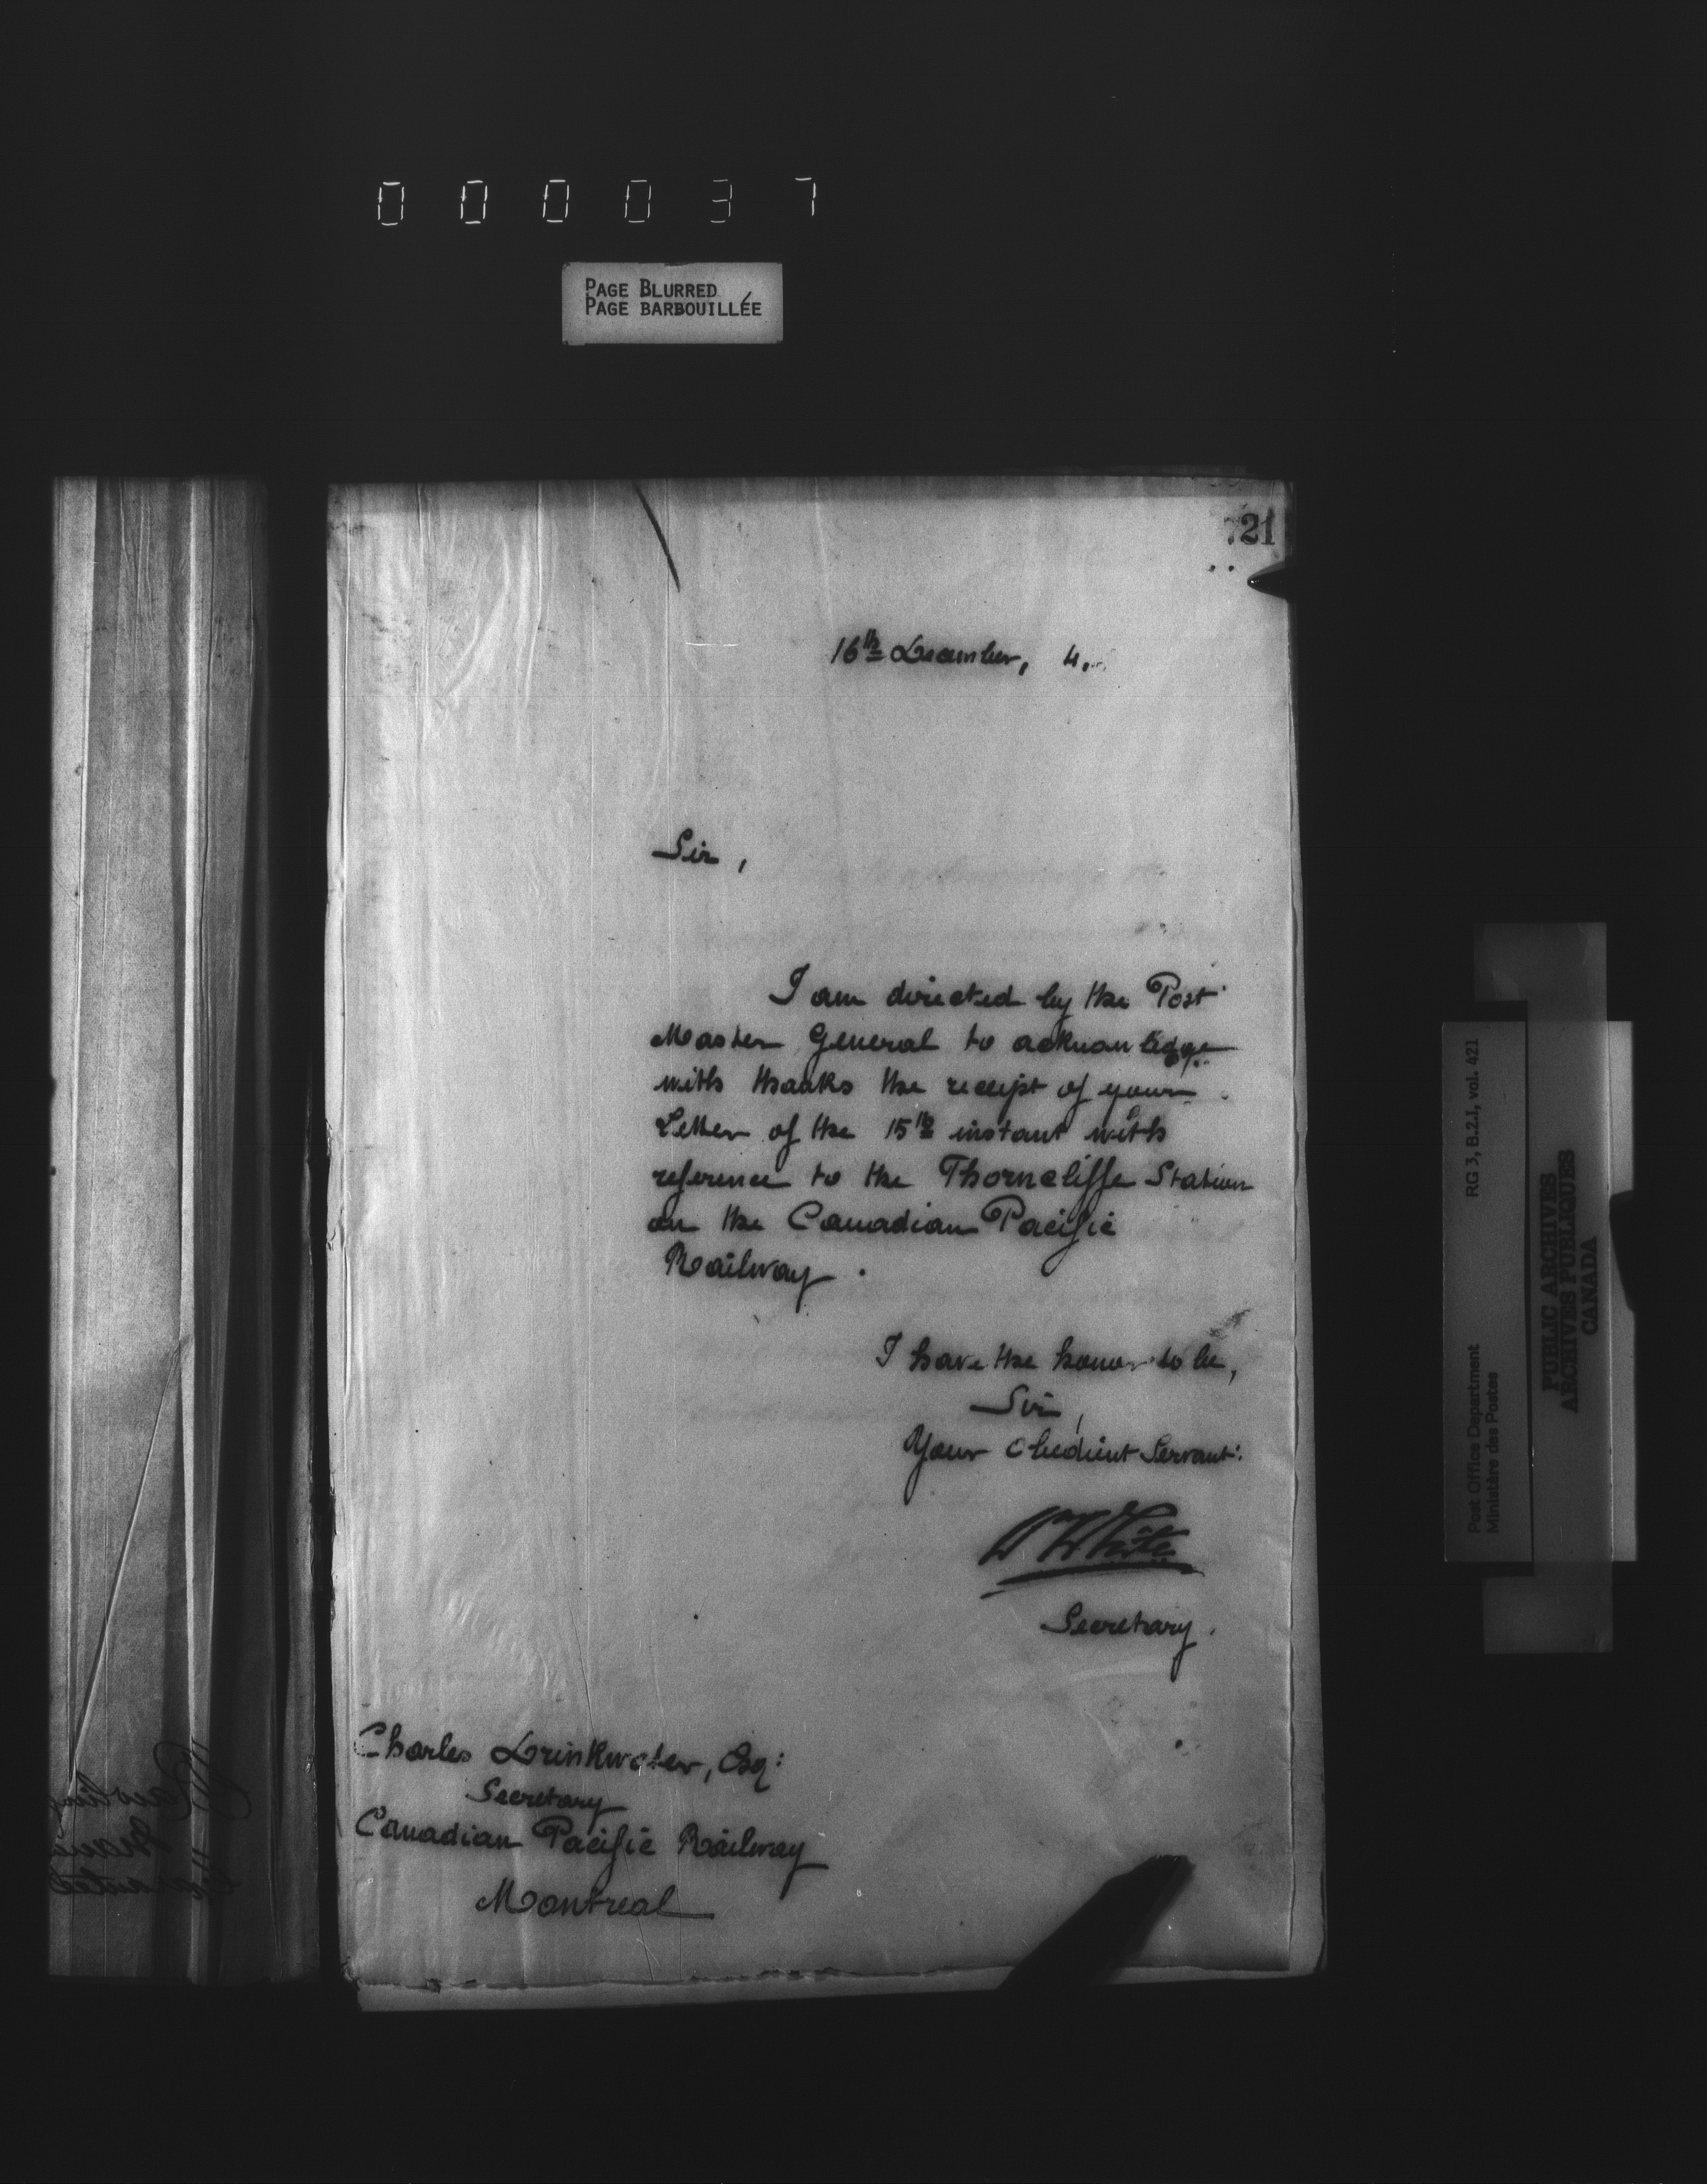 000037
PAGE BLURRED
PAGE BARBOUILLÉE
721
16th December, 4.
Sir,
I am directed by the Post
Master General to acknowledge
with thanks the receipt of your
Letter of the 15th instant with
reference to the Thorncliffe Station
on the Canadian Pacific
Railway.
I have the honor to be,
Sir,
Your Obedient Servant:
W White
Secretary.
Charles Drinkwater, Esq:
Secretary
Canadian Pacific Railway
Montreal
RG 3, B.2.I, vol. 421
Post Office Department
Ministère des Postes
PUBLIC ARCHIVES
ARCHIVES PUBLIQUES
CANADA